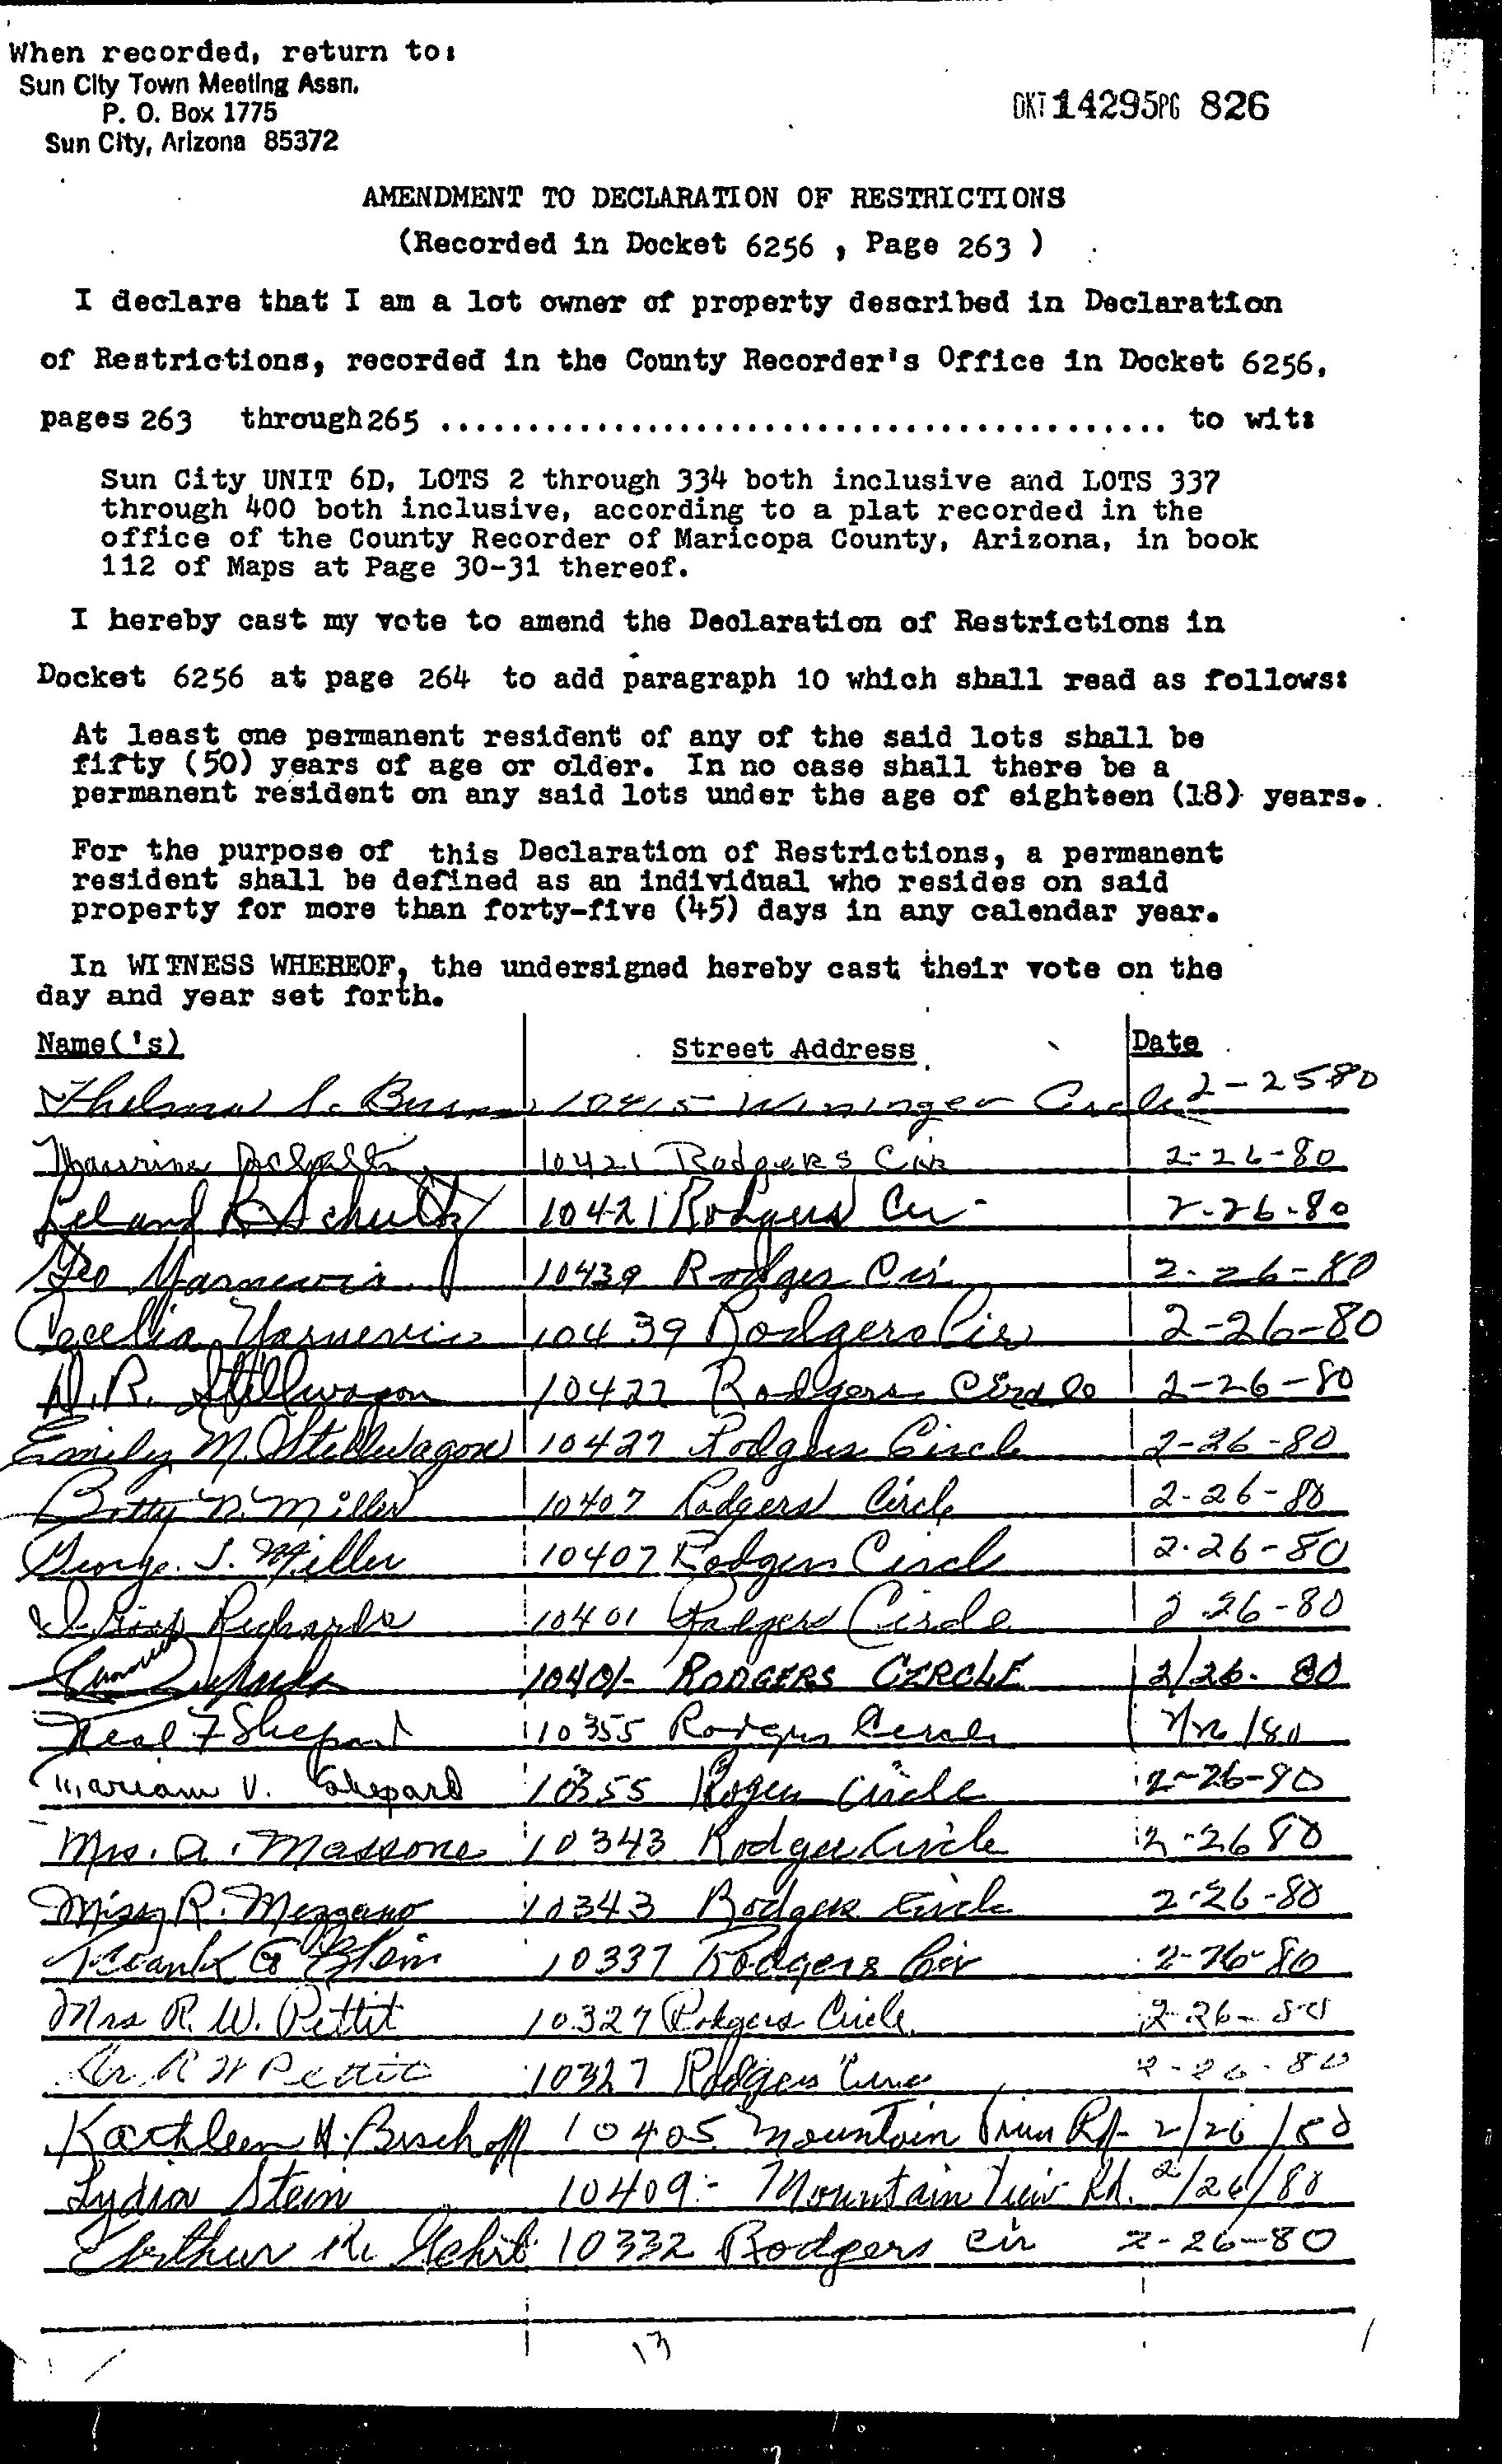 When recorded, return to:
Sun City Town Meeting Assn.
P. O. Box 1775
Sun City, Arizona 85372
DKT 14295PG 826
AMENDMENT TO DECLARATION OF RESTRICTIONS
(Recorded in Docket 6256 , Page 263 )
I declare that I am a lot owner of property described in Declaration
of Restrictions, recorded in the County Recorder's Office in Docket 6256,
pages 263 through 265 .......................................... to wit:
Sun City UNIT 6D, LOTS 2 through 334 both inclusive and LOTS 337
through 400 both inclusive, according to a plat recorded in the
office of the County Recorder of Maricopa County, Arizona, in book
112 of Maps at Page 30-31 thereof.
I hereby cast my vote to amend the Declaration of Restrictions in
Docket 6256 at page 264 to add paragraph 10 which shall read as follows:
At least one permanent resident of any of the said lots shall be
fifty (50) years of age or older. In no case shall there be a
permanent resident on any said lots under the age of eighteen (18) years.
For the purpose of this Declaration of Restrictions, a permanent
resident shall be defined as an individual who resides on said
property for more than forty-five (45) days in any calendar year.
In WITNESS WHEREOF, the undersigned hereby cast their vote on the
day and year set forth.
Name('s) Street Address Date
Thelma S. 10415 Wininger Circle 2-25 80
10421 Rodgers Cir 2-26-80
Leland R Schultz 10421 Rodgers Cir 2-26-80
Geo Yarnevic 10439 Rodgers Cir 2-26-80
Cecelia 10439 Rodgers Cir 2-26-80
D.R. Stillwagon 10427 Rodgers Circle 2-26-80
Emily M. Stillwagon 10427 Rodgers Circle 2-26-80
Betty N. Miller 10407 Rodgers Circle 2-26-80
George J. Miller 10407 Rodgers Circle 2-26-80
Richards 10401 Rodgers Circle 2-26-80
10401- RODGERS CIRCLE 2/26-80
Neal F Shepard 10355 Rodgers Circle 2/26/80
Mariam V. Shepard 10355 Rogers Circle 2-26-80
Mrs. A. Massone 10343 Rodgers Circle 2-26 80
Missy R. Mezzano 10343 Rodgers Circle 2-26-80
Frank G Stein 10337 Rodgers Cir 2-26-80
Mrs R. W. Pettit 10327 Rodgers Circle 2-26-80
Mr. R W Pettit 10327 Rodgers Circle 2-26-80
Kathleen H. Bischoff 10405 Mountain View Rd- 2/26/80
Lydia Stein 10409- Mountain View Rd. 2/26/80
Arthur R. 10332 Rodgers Cir 2-26-80
13